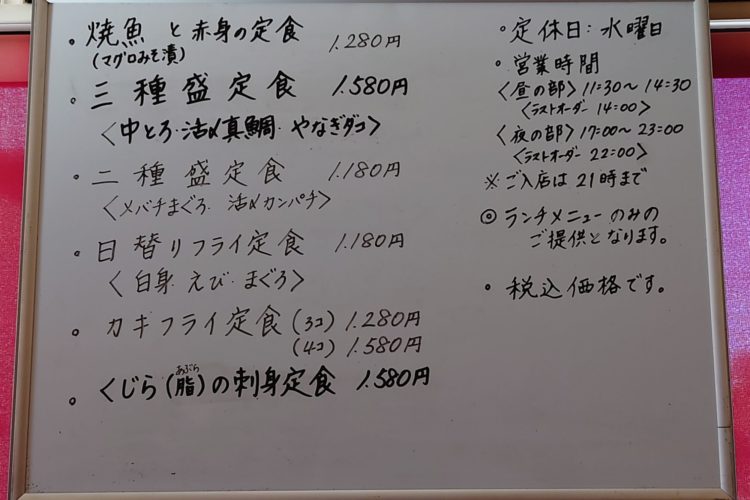 ・焼魚と赤身の定食 1.280円
(マグロみそ漬)
・三種盛定食 1.580円
〈中とろ・活〆真鯛・やなぎダコ〉
・二種盛定食 1.180円
〈メバチまぐろ・活〆カンパチ〉
・日替りフライ定食 1.180円
〈白身・えび・まぐろ〉
・カキフライ定食(3コ) 1.280円
(4コ) 1.580円
・くじら(脂)の刺身定食 1.580円
あぶら
・定休日:水曜日
・営業時間
〈昼の部〉11:30～14:30
〈ラストオーダー 14:00〉
〈夜の部〉17:00～23:00
〈ラストオーダー 22:00〉
※ご入店は21時まで
◎ランチメニューのみの
ご提供となります。
・税込価格です。